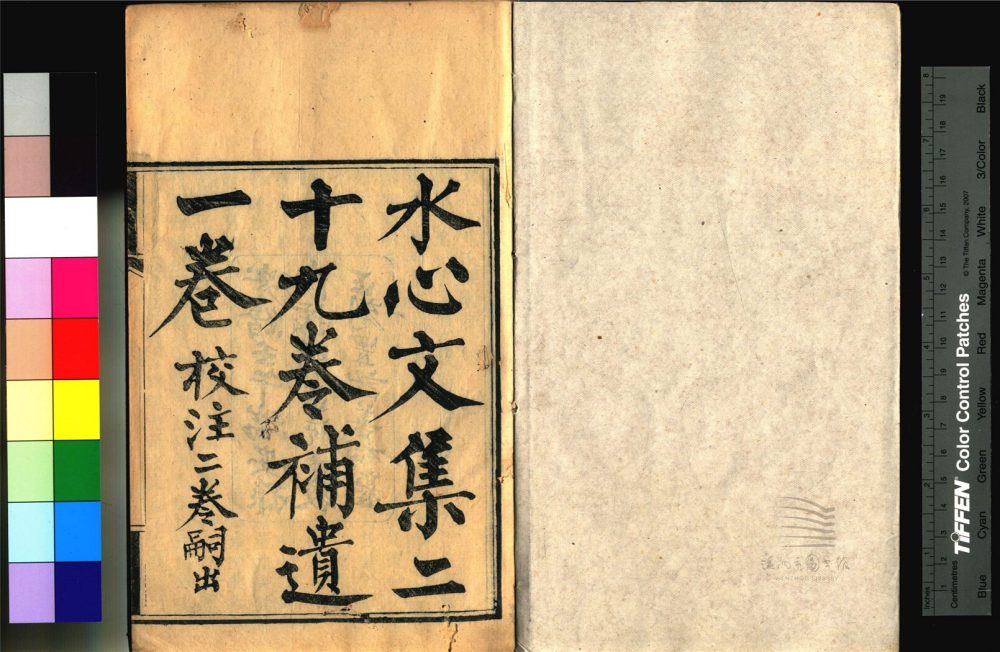 水心文集二
十九卷補遺
一卷校注二卷嗣出
温州市图书馆
WENZHOU LIBRARY
TIFFEN Color Control Patches
© The Tiffen Company, 2007
Inches
Centimetres
1 2 3 4 5 6 7 8
1 2 3 4 5 6 7 8 9 10 11 12 13 14 15 16 17 18 19
Blue Cyan Green Yellow Red Magenta White 3/Color Black